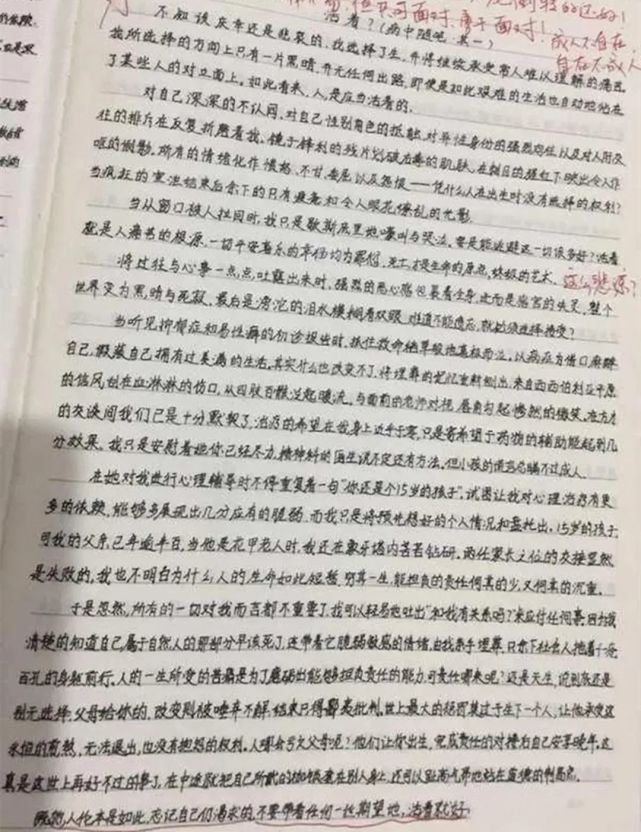 活着？(病中随笔 其一)
不知该庆幸还是悲哀的,我选择了生,并将继续承受常人难以理解的痛苦
我所选择的方向上只有一片黑暗,并无任何出路,即使是如此艰难的生活也自动地站在
了某些人的对立面上。如此看来,人是应当活着的.
对自己深深的不认同,对自己性别角色的抵触,对异性身份的强烈 以及对人际交
往的排斥在反复折磨着我,镜子锋利的残片划破右臂的肌肤,在 下映出令人作
呕的倒影,所有的情绪化作愤怒、不甘、委屈以及怨恨——凭什么人在出生时没有选择的权利?
当疯狂的宣泄结束后余下的只有疲惫和令人眼花缭乱的光影.
当从窗口被人拉回时,我只是歇斯底里地嚎叫与哭泣,要是能逃避这一切该多好?活着
就是人痛苦的根源,一切平安喜乐的幸福均为罪恶,死亡才是生命的原点,终极的艺术.
将过往与心事一点点吐露出来时,强烈的恶心感包裹着全身,次而是感官的失灵,整个
世界变为黑暗与死寂,最后是滂沱的泪水模糊着双眼,难道不能遗忘,就必须选择接受?
当听见抑郁症和易性癖的初诊报出时,抓住救命绝草般地喜极而泣,以病症为借口麻醉
自己,假装自己拥有过美满的生活,其实什么也改变不了,将埋葬的记忆重新刨出,来自西西伯利亚平原
的信风刮在血淋淋的伤口,从四肢百骸泛起暖流,与面前的老师对视,唇角勾起惨然的微笑,在方才
的交谈间我们已是十分默契了,治疗的希望在我身上近乎于零,只是寄希望于药物的辅助能起到几
分效果,我只是安慰着她你已经尽力,精神科的医生说不定还有方法,但小孩的谎言总瞒不过成人.
在她对我进行心理辅导时不得重复着一句"你还是个15岁的孩子",试图让我对心理治疗有更
多的依赖,能够多展现出几分应有的脆弱,而我只是将预先想好的个人情况和盘托出,15岁的孩子
可我的父亲,已年逾半百,当他是花甲老人时,我还在象牙塔内苦苦钻研,两任家长之位的交接显然
是失败的,我也不明白为什么人的生命如此短暂,穷其一生,能担负的责任何其的少,又何其的沉重.
于是忽然,所有的一切对我而言都不重要了,我可以轻易地吐出"和我有关系吗?"来应付任何事,因为我
清楚的知道自己属于自然人的那部分早该死了,连带着它脆弱敏感的情绪,由我亲手埋葬,只余下社会人拖着千疮
百孔的身躯前行,人的一生所受的苦痛是为了磨砺出能够担负责任的能力,可责任哪来呢?还是天生,说到底还是
别无选择,父母给你的,改变则被唾弃不解,结束只得 批判,世上最大的惩罚莫过于生下一个人,让他承受这
永恒的煎熬,无法退出,也没有抱怨的权利,人哪会亏欠父母呢?他们让你出生,完成责任的对接后自己安享晚年,这
真是这世上再好不过的事了,在中途就把自己所戴的枷锁套在别人身上,还可以趾高气昂地站在道德的制高点.
既然人伦本是如此,忘记自己们渴求的,不要带着任何一丝期望地,活着就好.
面对
成人不自在
自在不成人
这么悲凉?